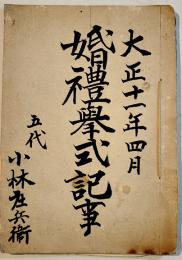 大正十一年四月
婚禮擧式記事
五代
小林庄兵衛